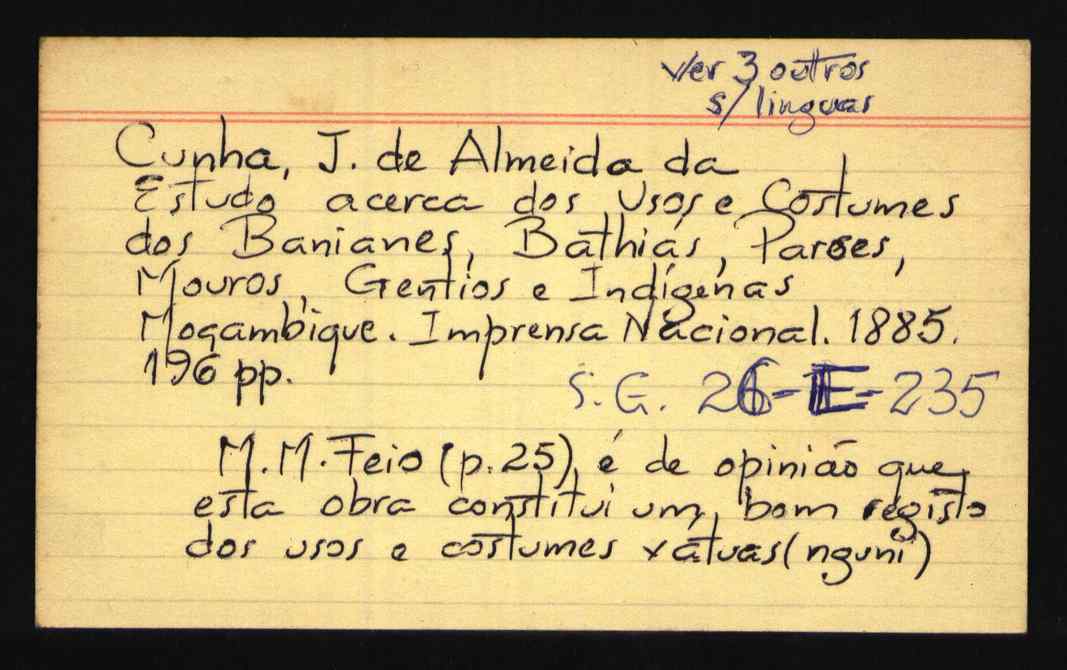 Ver 3 outros
s/ linguas
Cunha, J. de Almeida da
Estudo acerca dos Usos e Costumes
dos Banianes, Bathiás, Parses,
Mouros, Gentios e Indígenas
Moçambique. Imprensa Nacional. 1885.
196 pp.
S.G. 26-E-235
M.M. Feio (p.25), é de opinião que
esta obra constitui um bom registo
dos usos e costumes xátuas (nguni)